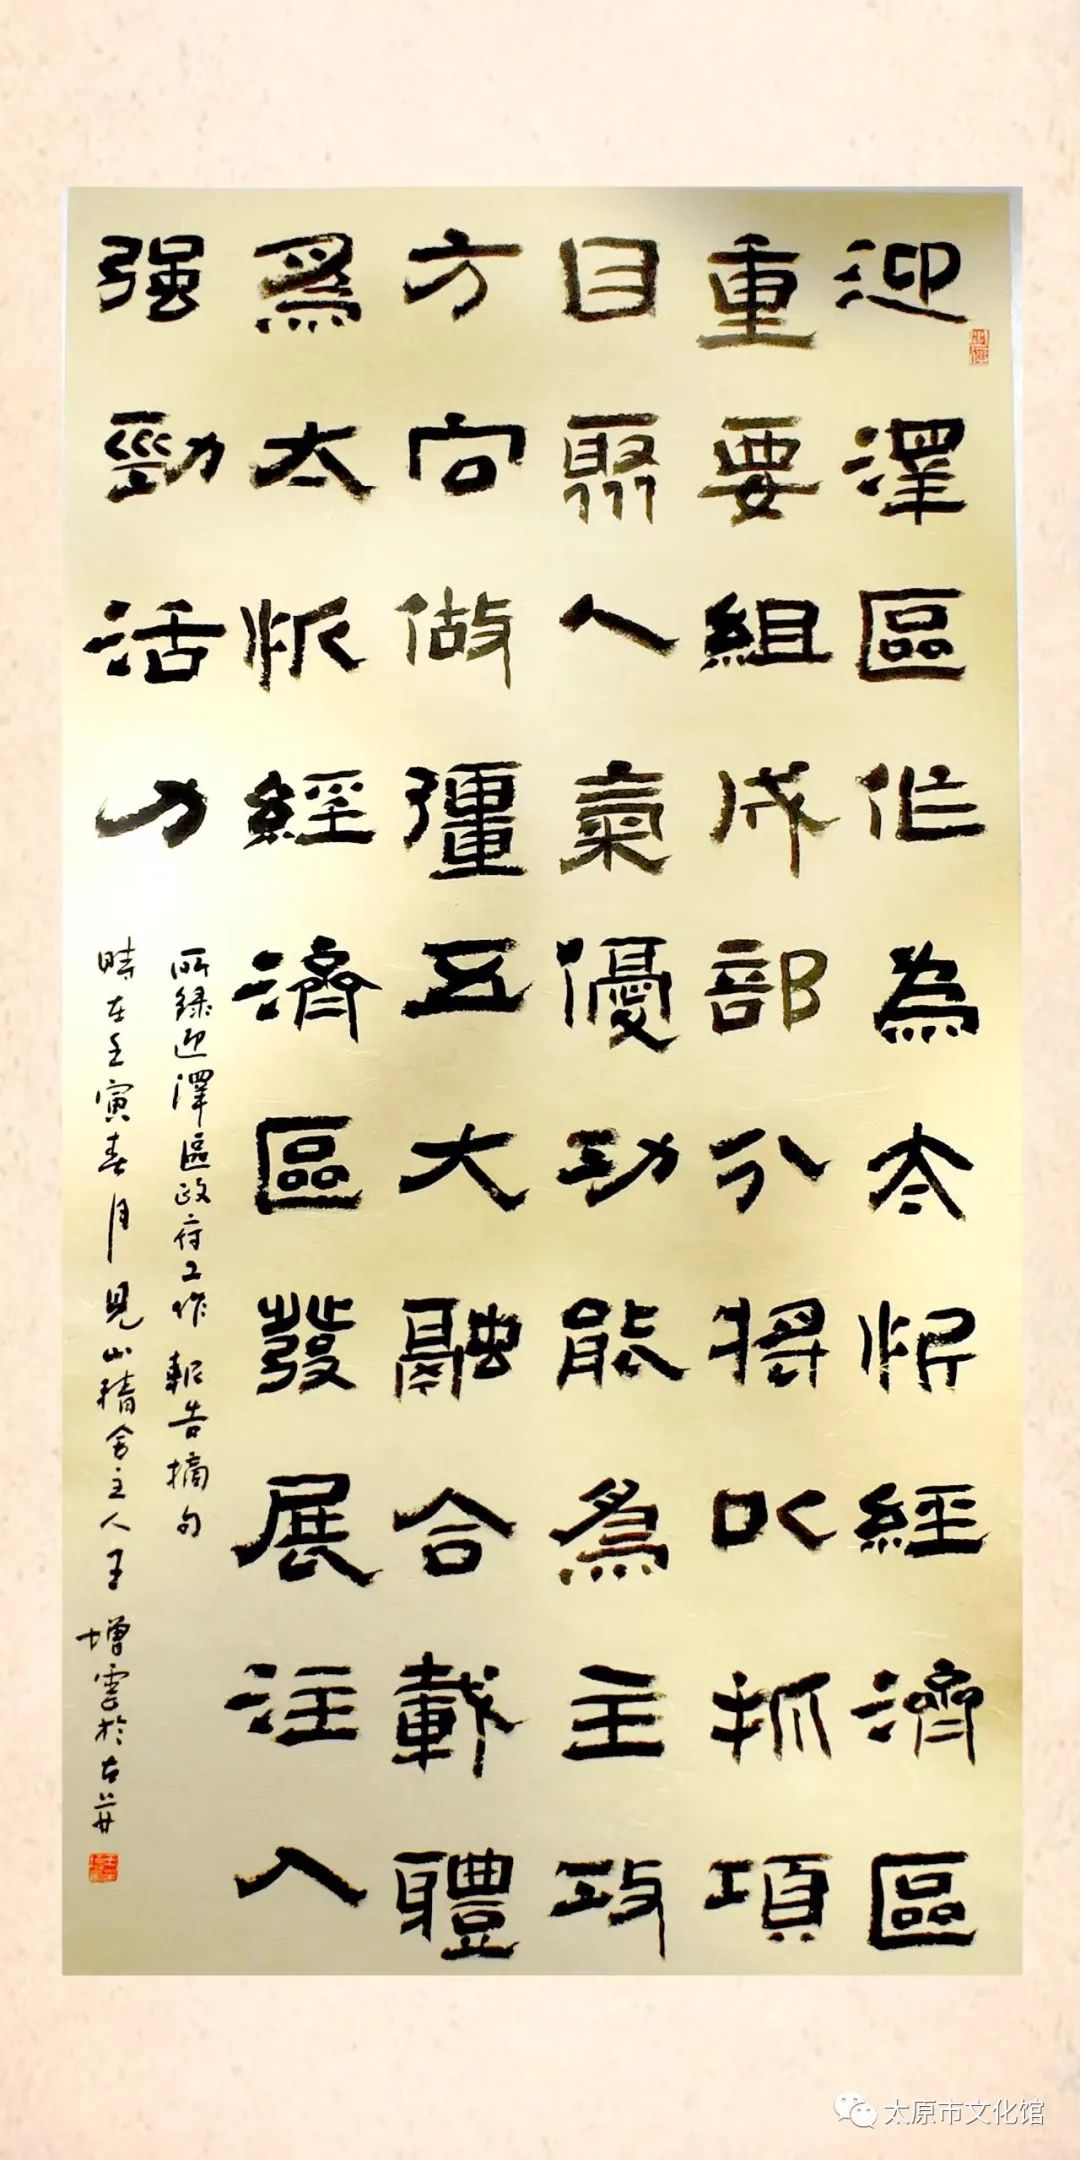 迎澤區作為太忻經濟區
重要組成部分將以抓項
目聚人氣優功能為主攻
方向做彊五大融合載體
為太忻經濟區發展注入
强勁活力
所錄迎澤區政府工作報告摘句
時在壬寅春月見山精舍主人王增雲於古并
太原市文化馆